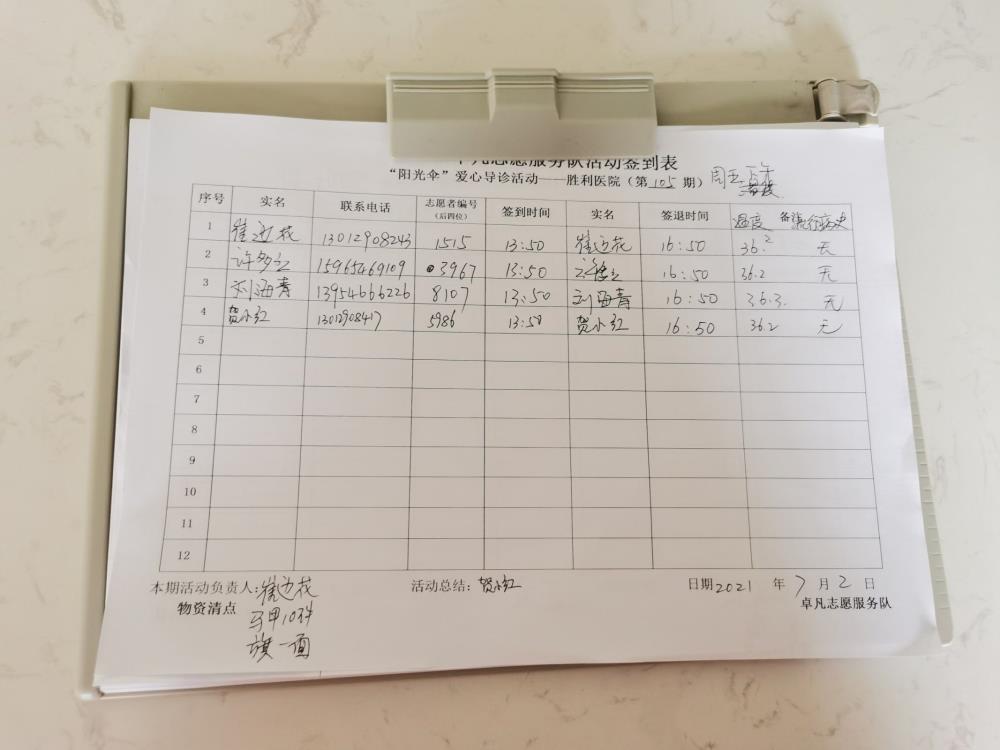 卓凡志愿服务队活动签到表
“阳光伞”爱心导诊活动——胜利医院（第 105 期） 周五下午
序号 实名 联系电话 志愿者编号（后四位） 签到时间 实名 签退时间 温度 备注 流行病史
1 崔边花 13012908243 1515 13:50 崔边花 16:50 36.2 无
2 许多红 15965469109 3967 13:50 16:50 36.2 无
3 刘海青 13954666226 8107 13:50 刘海青 16:50 36.3. 无
4 贺小红 13012908417 5986 13:50 贺小红 16:50 36.2 无
5
6
7
8
9
10
11
12
本期活动负责人:崔边花 活动总结: 贺小红 日期2021 年 7 月 2 日
物资清点 马甲10件 卓凡志愿服务队
旗一面